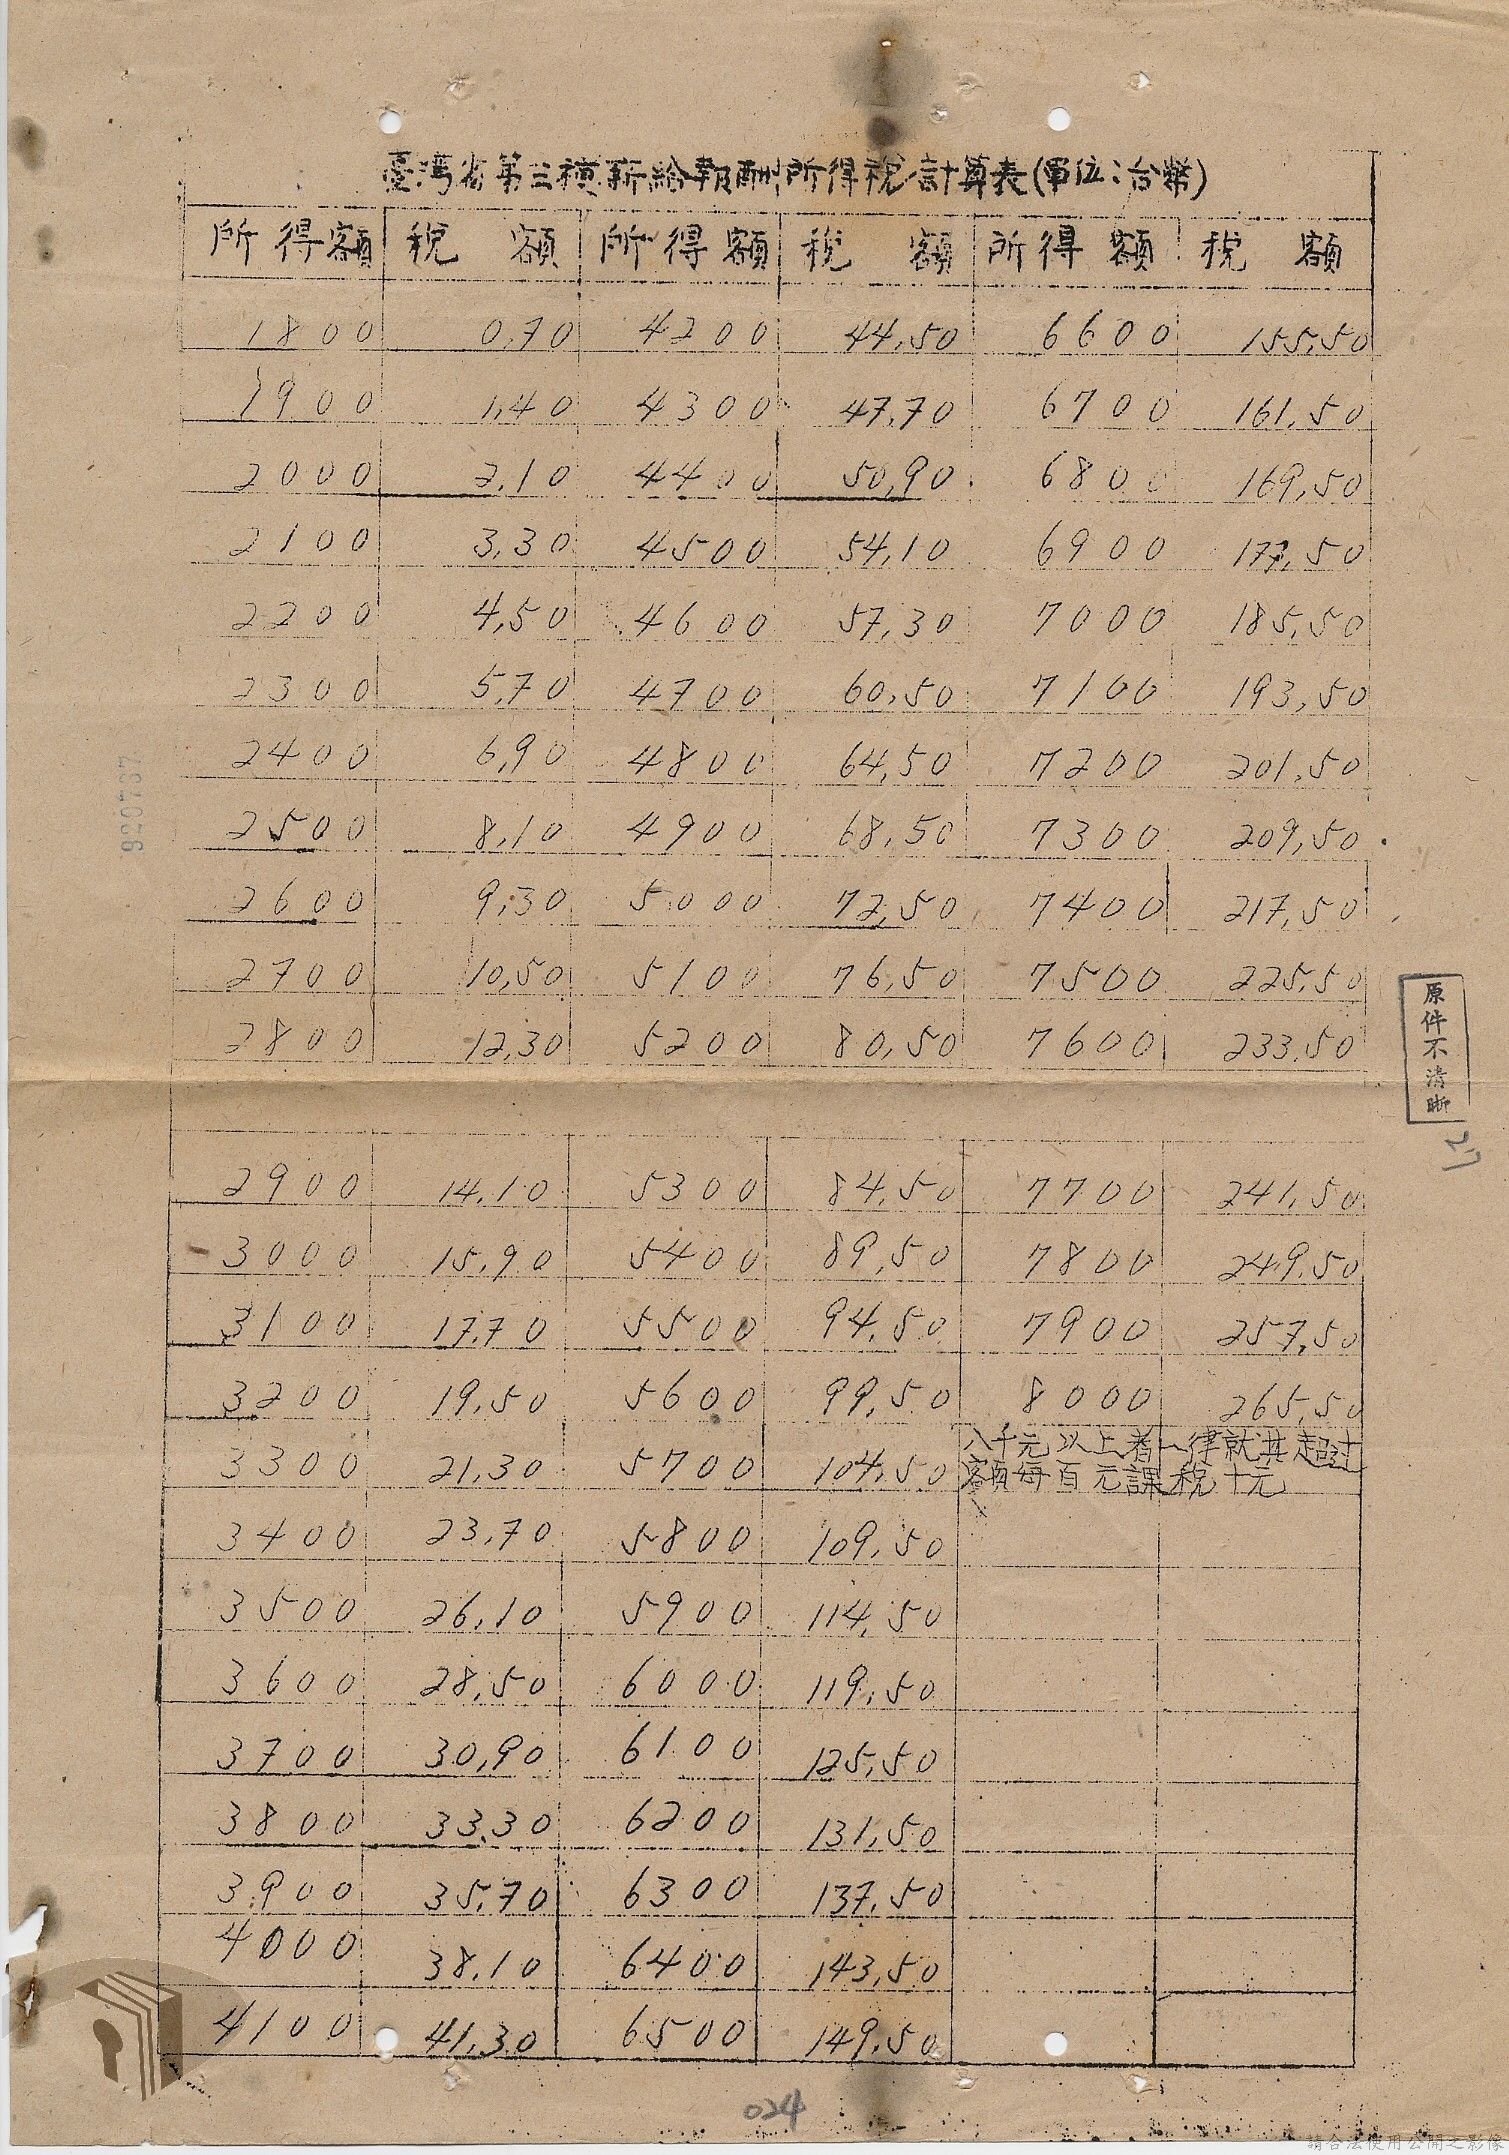 臺灣省第三種薪給報酬所得稅計算表(單位:台幣)
所得額 稅額 所得額 稅額 所得額 稅額
1800 0,70 4200 44,50 6600 155,50
1900 1,40 4300 47,70 6700 161,50
2000 2,10 4400 50,90 6800 169,50
2100 3,30 4500 54,10 6900 177,50
2200 4,50 4600 57,30 7000 185,50
2300 5,70 4700 60,50 7100 193,50
2400 6,90 4800 64,50 7200 201,50
2500 8,10 4900 68,50 7300 209,50
2600 9,30 5000 72,50 7400 217,50
2700 10,50 5100 76,50 7500 225,50
2800 12,30 5200 80,50 7600 233,50
2900 14,10 5300 84,50 7700 241,50
3000 15,90 5400 89,50 7800 249,50
3100 17,70 5500 94,50 7900 257,50
3200 19,50 5600 99,50 8000 265,50
3300 21,30 5700 104,50 八千元以上者一律就其超過
額每百元課稅十元
3400 23,70 5800 109,50
3500 26,10 5900 114,50
3600 28,50 6000 119,50
3700 30,90 6100 125,50
3800 33,30 6200 131,50
3900 35,70 6300 137,50
4000 38,10 6400 143,50
4100 41,30 6500 149,50
920737
原件不清晰
024
請合法使用公開之影像